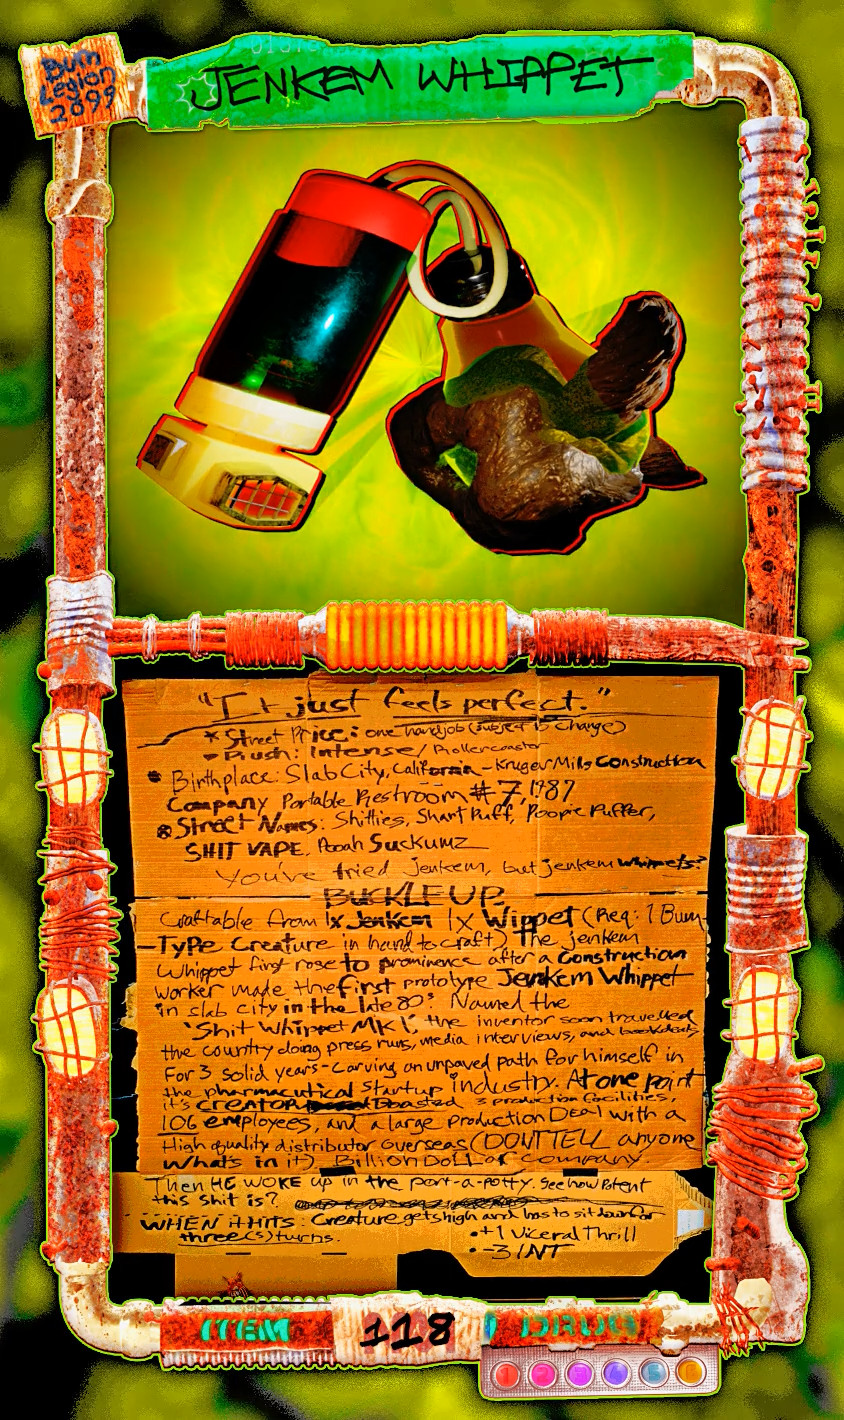 Bum
Legion
2099
JENKEM WHIPPET
"It just feels perfect."
* Street Price: one handjob (subject to change)
Rush: Intense/Rollercoaster
Birthplace: Slab City, California - Kruger Mills Construction
Company Portable Restroom #7, 1987
Street Names: Shitties, Shart Puff, Poopie Puffer,
SHIT VAPE, Pooah Suckumz
You've tried jenkem, but jenkem whippets?
BUCKLE UP.
Craftable from 1x Jenkem 1x Wippet (Req: 1 Bum-
-Type Creature in hand to craft) The jenkem
Whippet first rose to prominence after a Construction
worker made the first prototype Jenkem Whippet
in slab city in the late 80s. Named the
'Shit Whippet MK 1', the inventor soon travelled
the country doing press runs, media interviews, and book deals
For 3 solid years - Carving an unpaved path for himself in
the pharmacutical startup industry. At one point
it's CREATOR boasted 3 production facilities,
106 employees, and a large production DEAL with a
High quality distributor overseas (DONT TELL anyone
What's in it) Billion Dollar Company
Then HE WOKE up in the port-a-potty. See how potent
this shit is?
WHEN it HITS: Creature gets high and has to sit down for
three(3) turns.
• +1 Viceral Thrill
• -3 INT
ITEM
118
DRUG